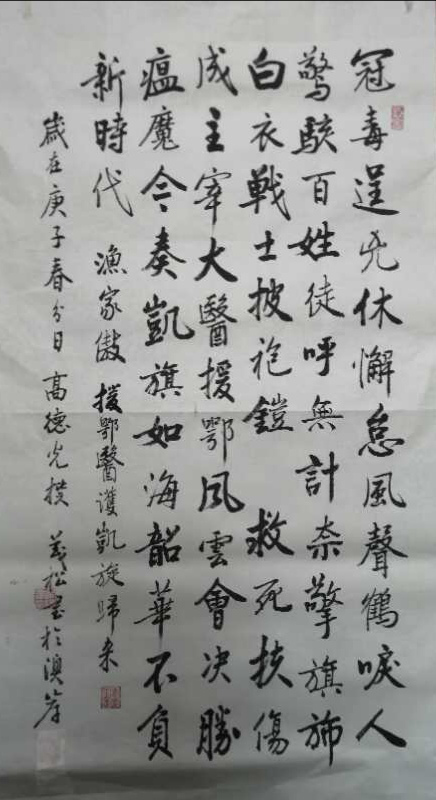 冠毒逞兇休懈怠風聲鶴唳人
驚駭百姓徒呼無計奈擎旗旆
白衣戰士披袍鎧 救死扶傷
成主宰大醫援鄂風雲會決勝
瘟魔令奏凱旗如海韶華不負
新時代 漁家傲 援鄂醫護凱旋歸來
歲在庚子春分日 高德光撰 義松書於淇岸